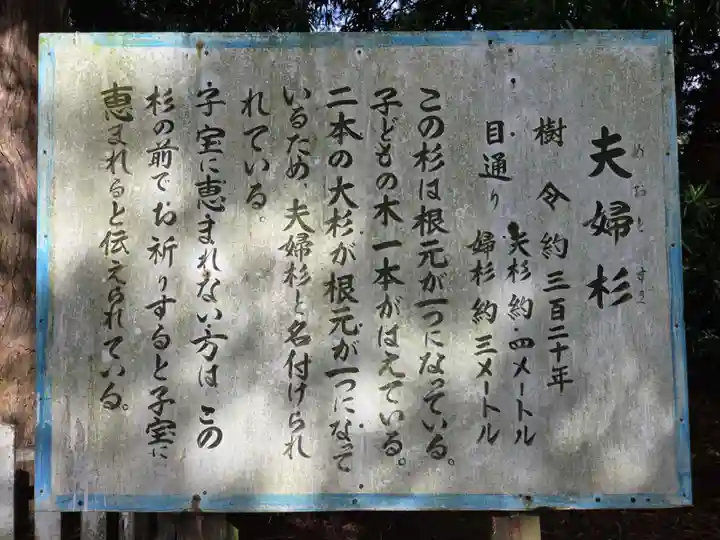 夫婦杉
めおとすぎ
樹令 約三百二十年
目通り 夫杉 約四メートル
婦杉 約三メートル
この杉は根元が一つになっている。
子どもの木一本がはえている。
二本の大杉が根元が一つになって
いるため、夫婦杉と名付けられ
れている。
子宝に恵まれない方は この
杉の前でお祈りすると子宝に
恵まれると伝えられている。